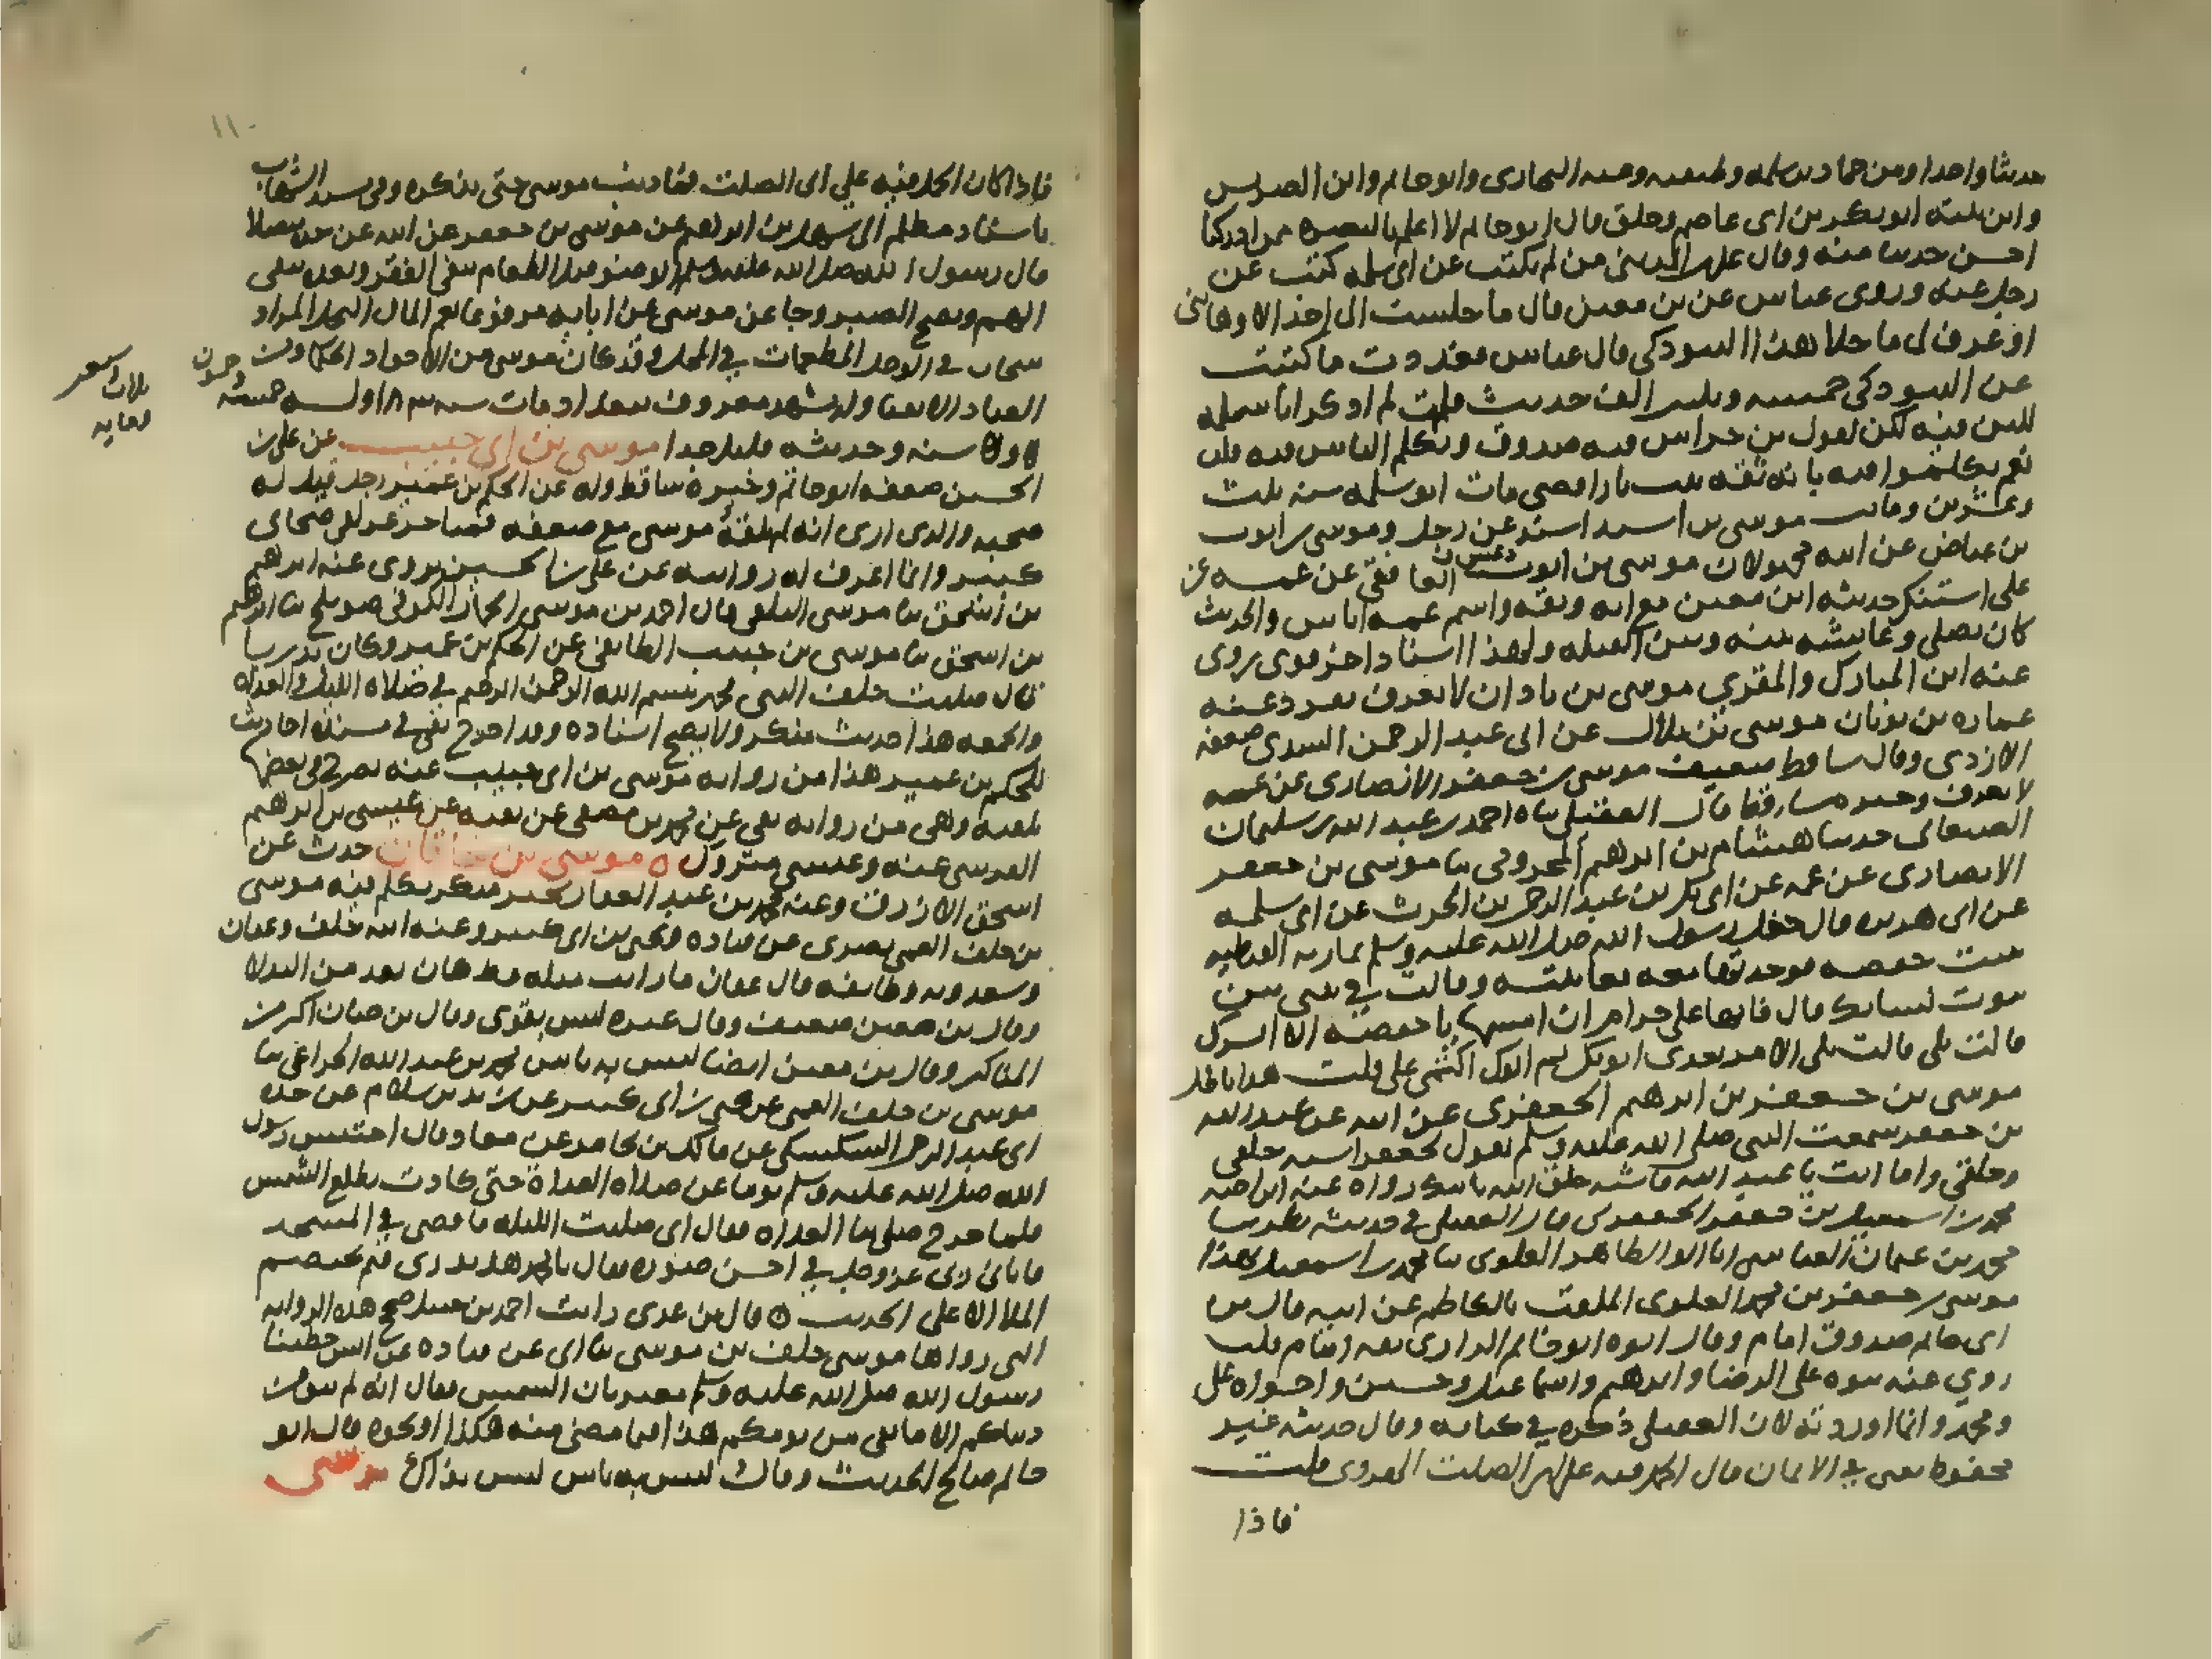 حديثا واحدا ومن حماد بن سلمه وطبقته وعنه البخارى وابو حاتم وابن الضريس
وابن ابنته ابو بكر بن ابى عاصم وخلق قال ابو حاتم لا اعلم بالبصره ممن ادركنا
احسن حديثا منه وقال على بن المدينى من لم يكتب عن ابى سلمه كتب عن
رجل عنه وروى عباس عن بن معين قال ما جلست الى احد الا وهابنى
او عرف لى ما خلا هذا التبوذكى قال عباس فعددت ما كتبت
عن التبوذكى خمسه وثلثين الف حديث قلت لم اذكر ابا سلمه
للين فيه لكن لقول بن خراش فيه صدوق وتكلم الناس فيه قلت
نعم تكلموا فيه بانه ثقه ثبت يا رافضى مات ابو سلمه سنه ثلث
وعشرين ومائتين موسى بن اسيد اسند عن رجل وموسى بن ايوب
بن عياض عن ابيه مجهولان موسى بن ايوب الغافقى عن عمه عن
على استنكر حديثه ابن معين مع انه وثقه واسم عمه اياس والحديث
كان يصلى وعايشه بينه وبين القبله ولهذا اسناد اخر قوى روى
عنه ابن المبارك والمقرى موسى بن باذان لا يعرف تفرد عنه
عماره بن ثوبان موسى بن بلال عن ابى عبد الرحمن السدى ضعفه
الازدى وقال ساقط ضعيف موسى بن جعفر الانصارى عن عمه
لا يعرف وخبره ساقط قال العقيلى ثناه احمد بن عبد الله بن سليمان
الصنعانى حدثنا هشام بن ابرهيم المخزومى ثنا موسى بن جعفر
الانصارى عن عمه عن ابى بكر بن عبد الرحمن بن الحرث عن ابى سلمه
عن ابى هريره قال دخل رسول الله صلى الله عليه وسلم بماريه القبطيه
بيت حفصه فوجدتها معه فعاتبته وقالت فى بيتى من بين
بيوت نسايك قال فانها على حرام ان امسها يا حفصه الا ابشرك
قالت بلى قال يلى الامر بعدى ابو بكر ثم ابوك اكتمى على قلت هذا باطل
موسى بن جعفر بن ابرهيم الجعفرى عن ابيه عن عبد الله
بن جعفر سمعت النبى صلى الله عليه وسلم يقول لجعفر اشبه خلقى
وخلقى واما انت يا عبد الله فاشبه خلق الله بابيك رواه عنه ابن اخيه
محمد بن اسمعيل بن جعفر الجعفرى قال العقيلى فى حديثه نظر ثنا
محمد بن عثمان العباسى انا ابو الطاهر العلوى ثنا محمد بن اسمعيل بهذا
موسى بن جعفر بن محمد العلوى الملقب بالكاظم عن ابيه قال بن
ابى حاتم صدوق امام وقال ابوه ابو حاتم الرازى ثقه امام قلت
روى عنه بنوه على الرضا وابرهيم واسماعيل وحسين واخواه على
ومحمد وانما اوردته لان العقيلى ذكره فى كتابه وقال حديثه غير
محفوظ يعنى فى الايمان قال الحمل فيه على ابى الصلت الهروى قلت
فاذا
١١٠
فاذا كان الحمل فيه على ابى الصلت فما ذنب موسى حتى يذكره وفى مسند الشهاب
باسناد مظلم الى سهل بن ابرهيم عن موسى بن جعفر عن ابيه عن جده متصلا
قال رسول الله صلى الله عليه وسلم الوضو قبل الطعام ينفى الفقر وبعده ينفى
الهم ويصح البصر وجا عن موسى عن ابايه مرفوعا نعم المال النخل الراسخات
فى الوحل المطعمات فى المحل وقد كان موسى من الاجواد الحكما ومن
العباد الاتقيا وله مشهد معروف ببغداد مات سنه ١٨٣ وله خمس وخمسون
سنه وحديثه قليل جدا موسى بن ابى حبيب عن على بن
الحسين ضعفه ابو حاتم وخبره ساقط وله عن الحكم بن عمير رجل قيل له
صحبه والذى ارى انه لم يلقه موسى مع ضعفه فمتاخر عن لقى صحابى
كبير وانما اعرف له روايه عن على بن الحسين يروى عنه ابرهيم
بن اسحق ثنا موسى البلقى قال احمد بن موسى الحمار الكوفى صويلح ثنا ابرهيم
بن اسحق ثنا موسى بن حبيب الطايفى عن الحكم بن عمير وكان بدريا
قال صليت خلف النبى فجهر ببسم الله الرحمن الرحيم فى صلاه الليل والغداه
والجمعه هذا حديث منكر ولا يصح اسناده وقد اخرج بقى فى مسنده احاديث
للحكم بن عمير هذا من روايه موسى بن ابى حبيب عنه يصرح فى بعضها
بلقيه وهى من روايه بقى عن محمد بن مصفى عن بقيه عن عيسى بن ابرهيم
القرشى عنه وعيسى متروك ٥ موسى بن خاقان حدث عن
اسحق الازرق وعنه محمد بن عبد الغفار بخبر منكر تكلم فيه موسى
بن خلف العمى بصرى عن قتاده ويحيى بن ابى كثير وعنه ابنه خلف وعفان
وسعدويه وطايفه قال عفان ما رايت مثله قط كان يعد من البدلا
وقال بن معين ضعيف وقال غيره ليس بقوى وقال بن حبان اكثر من
المناكير وقال بن معين ايضا ليس به باس محمد بن عبد الله الخزاعى ثنا
موسى بن خلف العمى عن يحيى بن ابى كثير عن زيد بن سلام عن جده
ابى عبد الرحمن السكسكى عن مالك بن يخامر عن معاذ قال احتبس رسول
الله صلى الله عليه وسلم يوما عن صلاه الغداة حتى كادت تطلع الشمس
فلما خرج صلى بنا الغداه فقال انى صليت الليله ما قضى فى المسجد
فاتانى ربى عز وجل فى احسن صوره فقال يا محمد هل تدرى فيم يختصم
الملا الاعلى الحديث ٥ قال بن عدى رايت احمد بن حنبل صحح هذه الروايه
التى رواها موسى خلف بن موسى ثنا ابى عن قتاده عن انس خطبنا
رسول الله صلى الله عليه وسلم بمغيربان الشمس فقال انه لم يبق من
دنياكم الا ما بقى من يومكم هذا فيما مضى منه هكذا او نحوه قال ابو
حاتم صالح الحديث وقال د ليس به باس ليس بذاك موسى